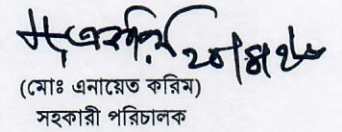 (মোঃ এনায়েত করিম)
সহকারী পরিচালক